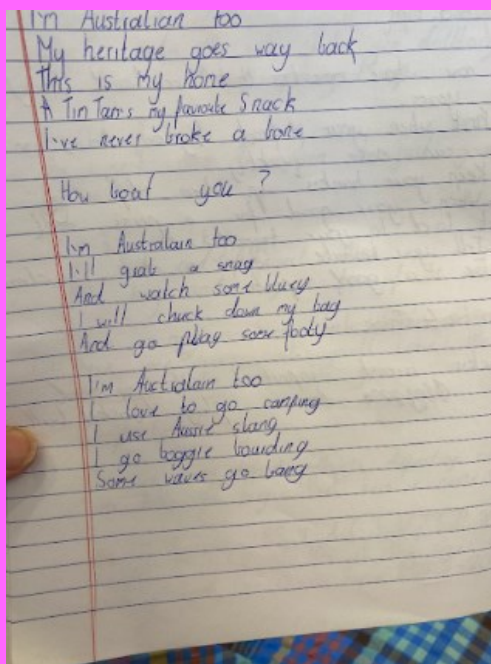 I'm Australian too
My heritage goes way back
This is my home
A Tim Tam's my favourite Snack
I've never broke a bone
How bout you ?
I'm Australain too
I'll grab a snag
And watch some bluey
I will chuck down my bag
And go play some footy
I'm Australain too
I love to go camping
I use Aussie slang
I go boggie bourding
Some waves go bang